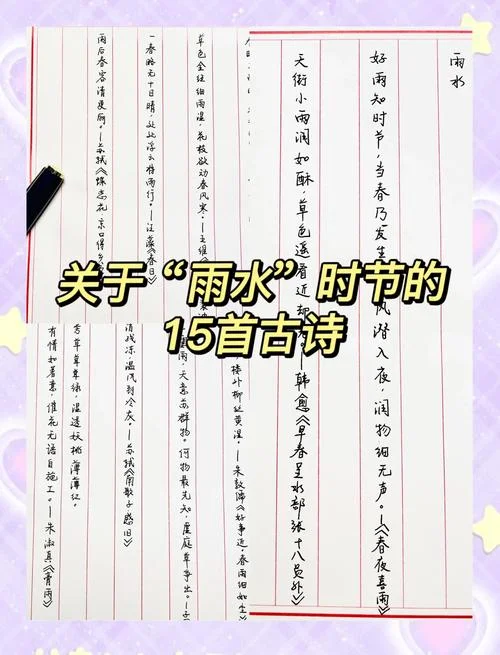 关于“雨水”时节的
15首古诗
雨水
好雨知时节,当春乃发生
风潜入夜,润物细无声。—《春夜喜雨》
天街小雨润如酥,草色遥看近却
韩愈《早春呈水部张十八员外》
草色全经细雨湿,花枝欲动春风寒。—王维
一春略无十日晴,处处浮云将雨行。—汪藻《春日》
雨后春容清更丽。—苏轼《蝶恋花·京口得乡
楼外柳丝黄湿。—朱敦儒《好事近·春雨细如尘》
雨,天意苏群物。何物最先知,虚庭草争出。—
清残冻,温风到冷灰。—苏轼《南歌子·感旧》
芳草草争绿,湿透妖桃薄薄红。
有情如着意,催花无语自施工。—朱淑真《膏雨》